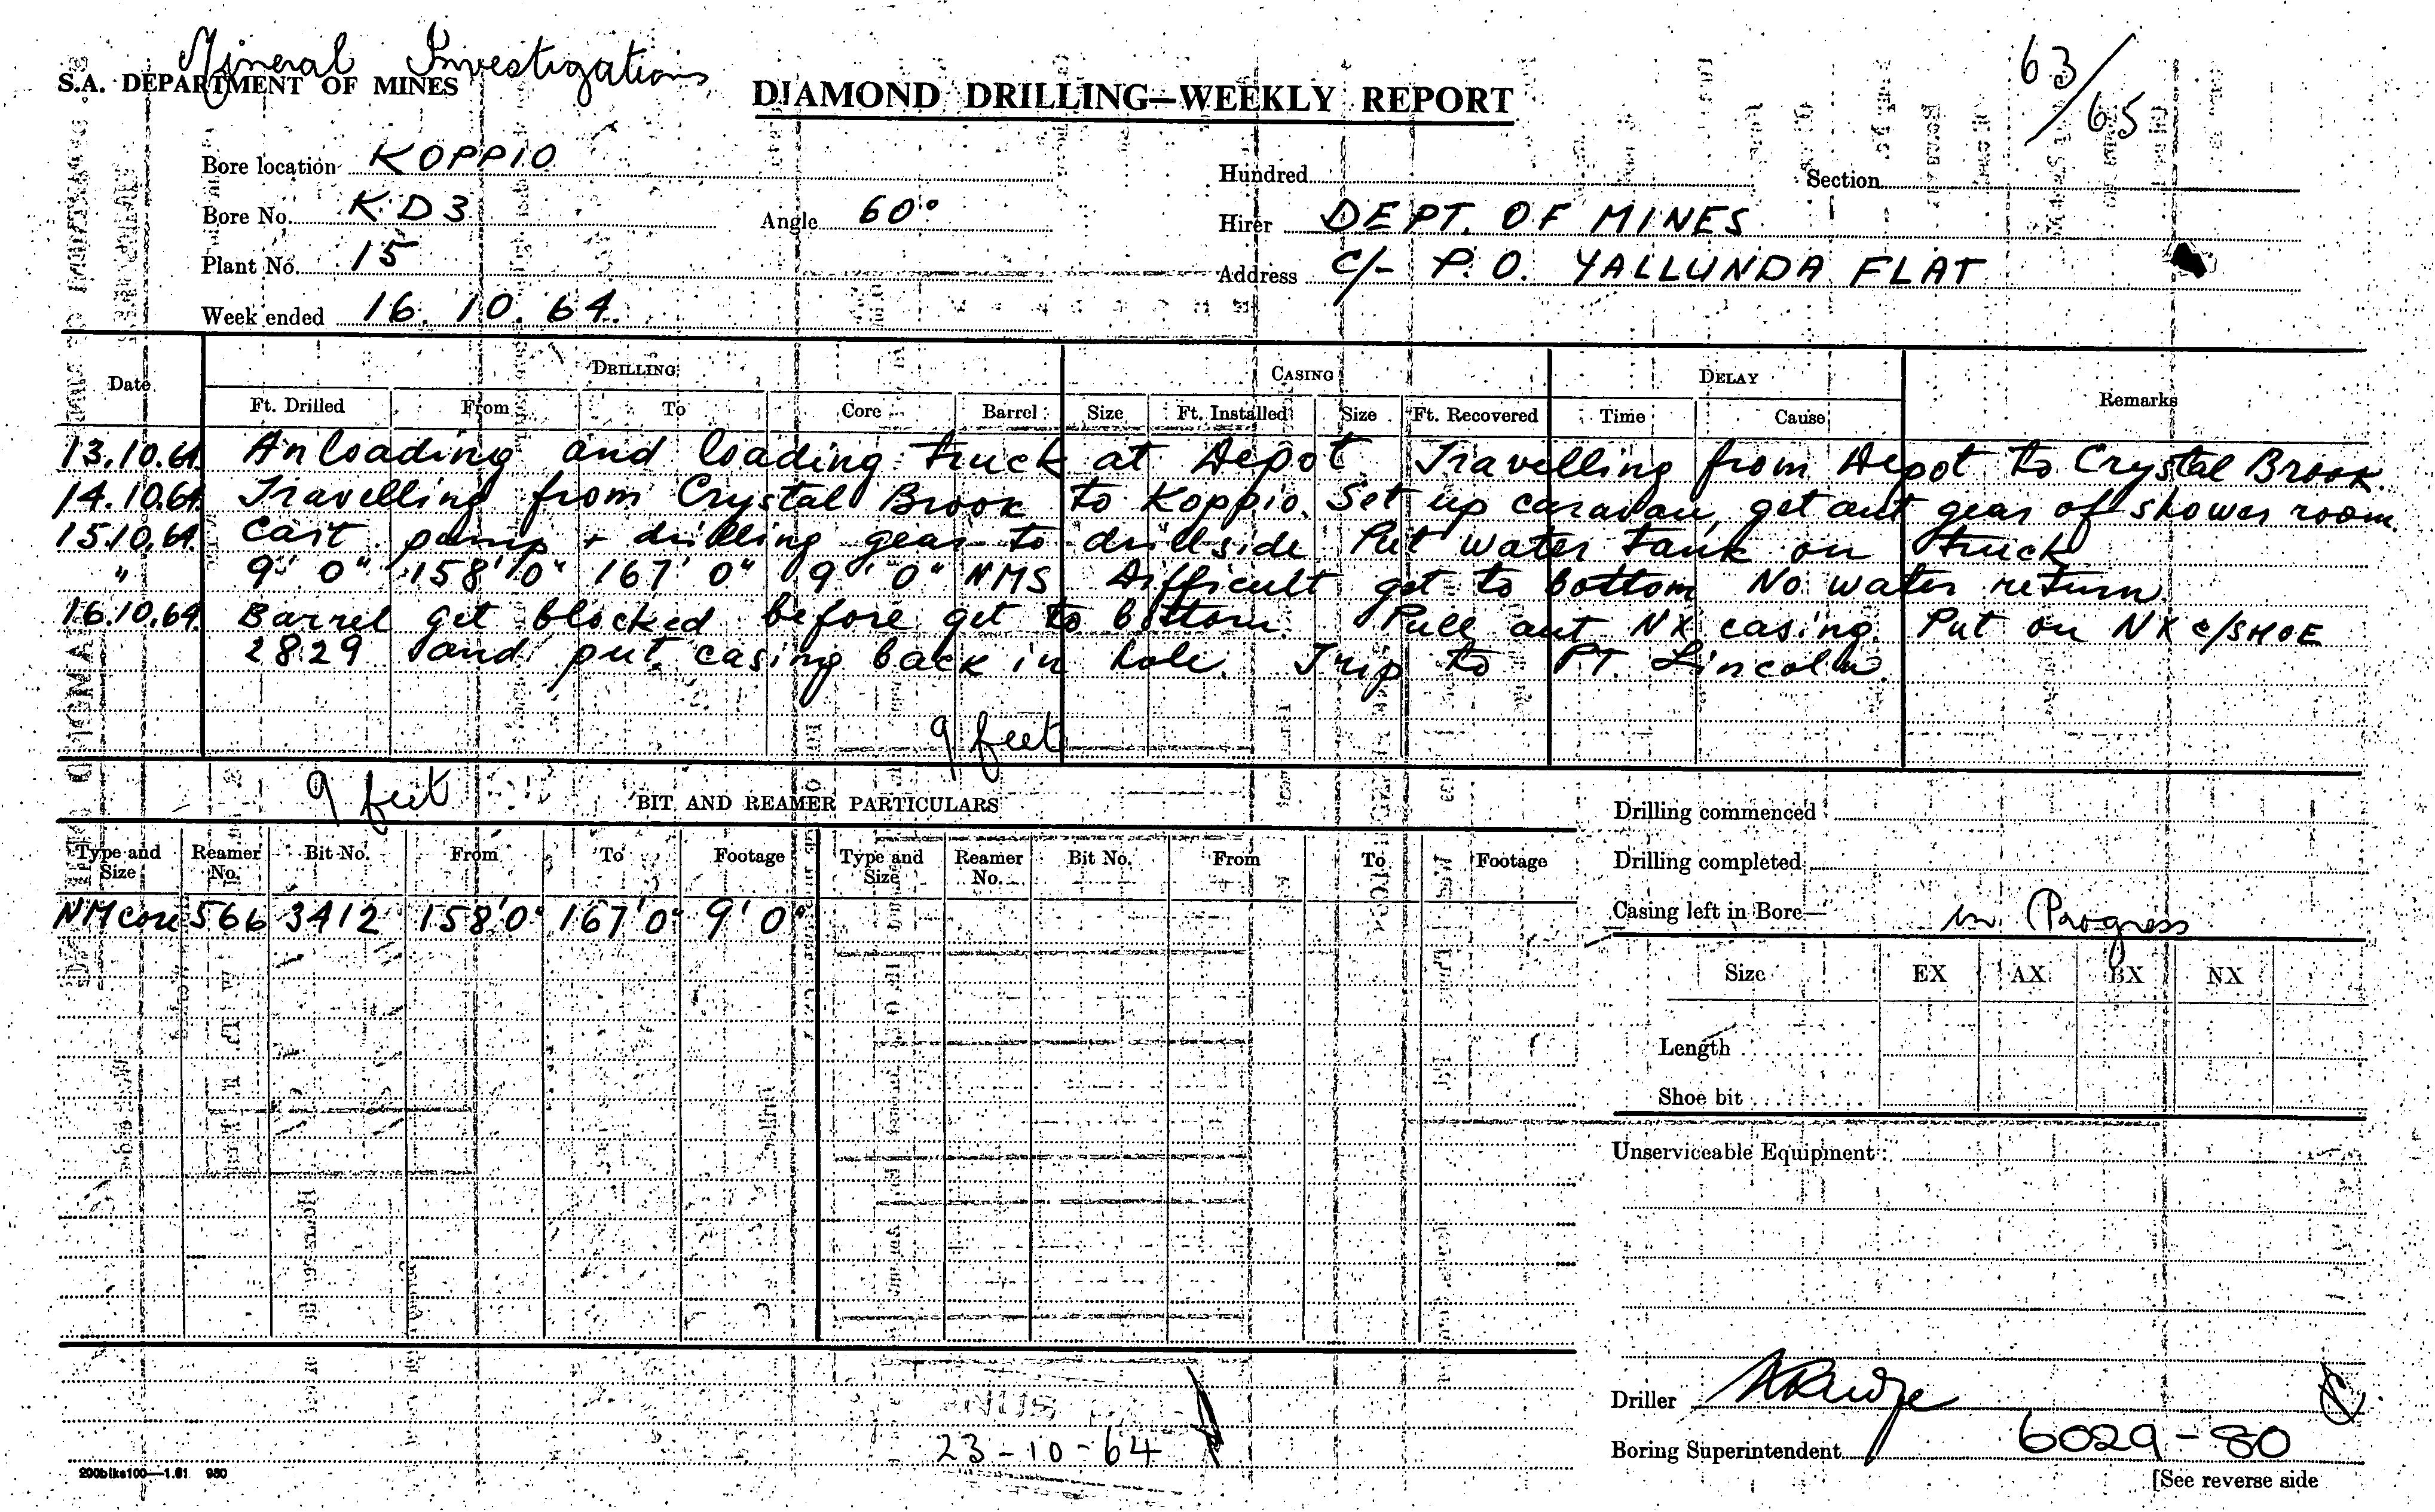 Mineral Investigations
S.A. DEPARTMENT OF MINES
DIAMOND DRILLING—WEEKLY REPORT
63/65
Bore location KOPPIO
Hundred
Section
Bore No. KD3
Angle 60°
Hirer DEPT. OF MINES
Plant No. 15
Address C/- P.O. YALLUNDA FLAT
Week ended 16.10.64.
Date
DRILLING
CASING
DELAY
Remarks
Ft. Drilled From To Core Barrel Size Ft. Installed Size Ft. Recovered Time Cause
13.10.64. Anloading and loading truck at Depot. Travelling from Depot to Crystal Brook.
14.10.64. Travelling from Crystal Brook to Koppio. Set up caravan, get out gear of shower room.
15.10.64. Cart pump + drilling gear to drillside Put water tank on truck
" 9' 0" 158' 0" 167' 0" 9' 0" NMS Difficult get to bottom No water return.
16.10.64. Barrel get blocked before get to bottom. Pull out NX casing. Put on NX C/SHOE
2829 and put casing back in hole. Trip to PT. Lincoln.
9 feet
9 feet
BIT AND REAMER PARTICULARS
Type and Size Reamer No. Bit No. From To Footage Type and Size Reamer No. Bit No. From To Footage
NM core 566 3412 158'0" 167'0" 9'0"
Drilling commenced
Drilling completed
Casing left in Bore—
In Progress
Size EX AX BX NX
Length
Shoe bit
Unserviceable Equipment:
Driller
Boring Superintendent
6029-80
23-10-64
200blks100—1.61 980
[See reverse side